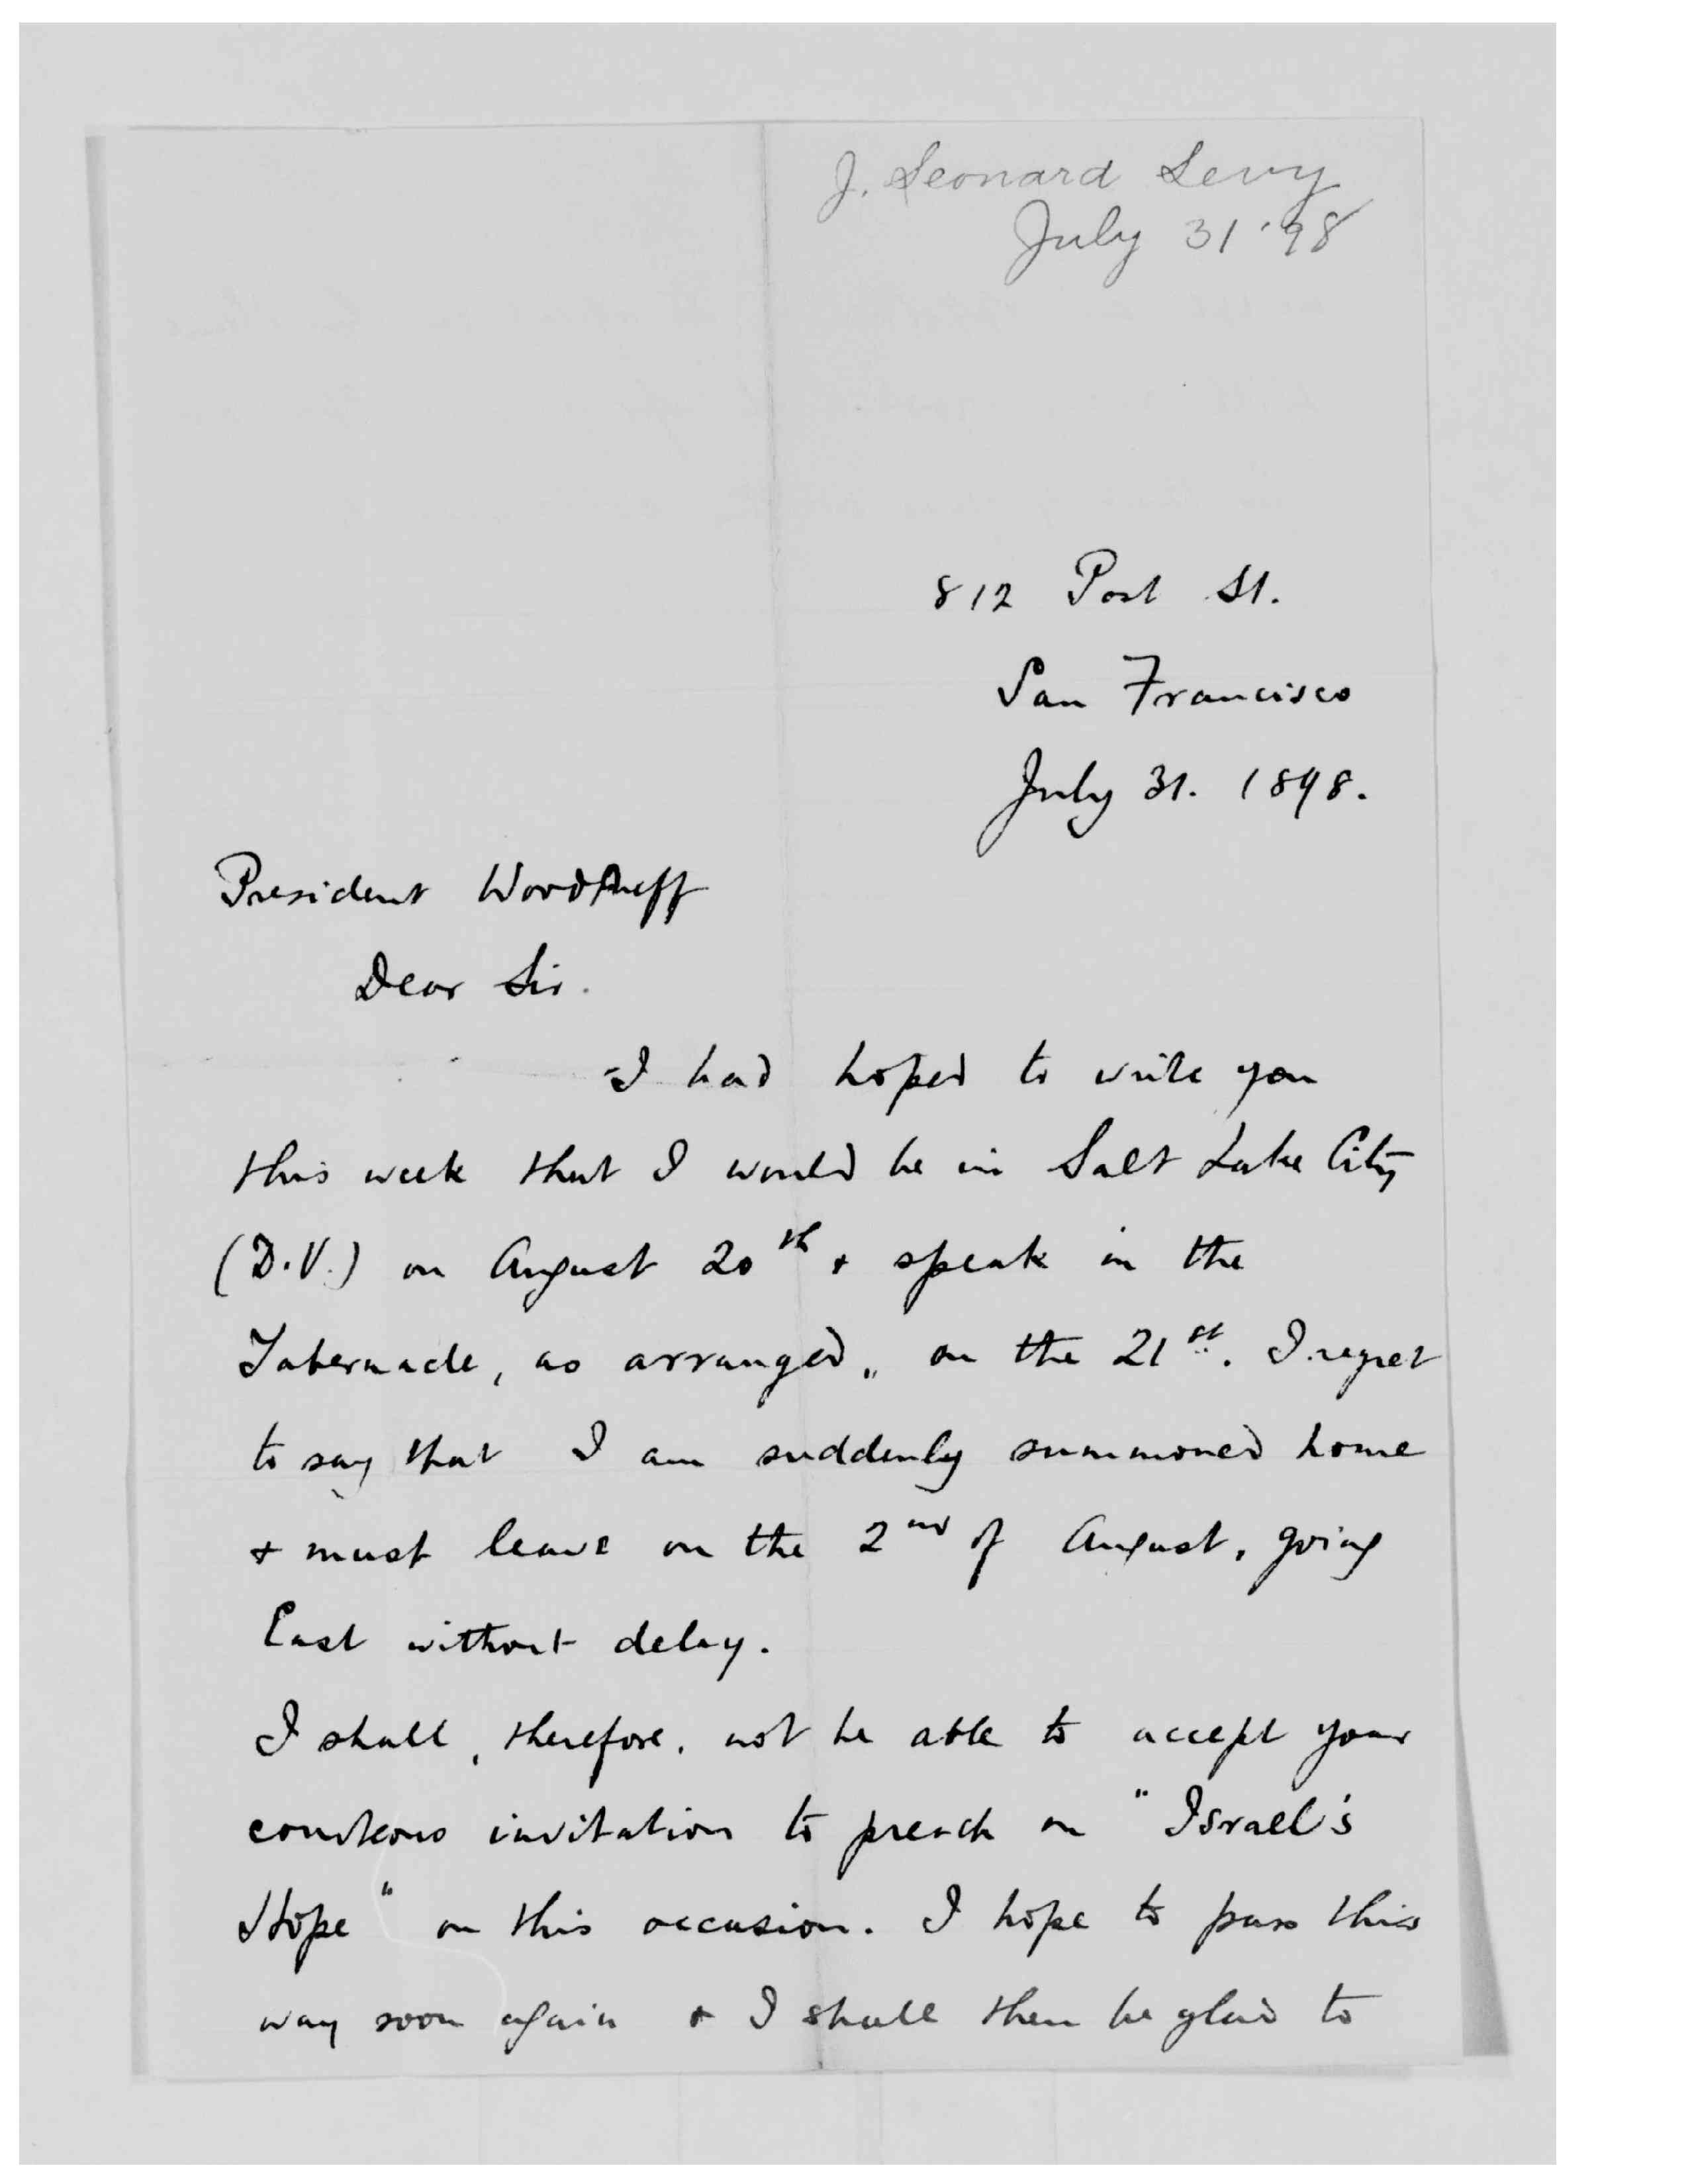 J. Leonard Levy
July 31 '98
812 Post St.
San Francisco
July 31. 1898.
President Woodruff
Dear Sir.
I had hoped to write you
this week that I would be in Salt Lake City
(D.V.) on August 20th & speak in the
Tabernacle, as arranged, on the 21st. I regret
to say that I am suddenly summoned home
& must leave on the 2nd of August, going
East without delay.
I shall, therefore, not be able to accept your
courteous invitation to preach on "Israel's
Hope" on this occasion. I hope to pass this
way soon again & I shall then be glad to